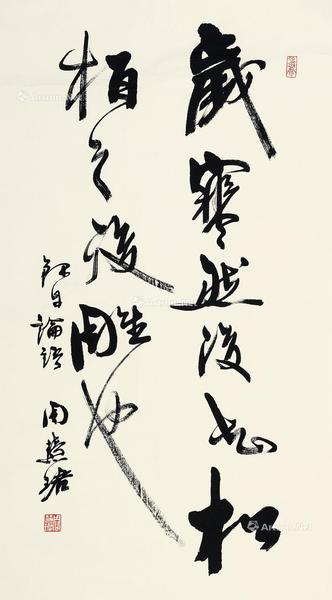 歲寒然後知松
柏之後雕也
錄自論語 周慧珺